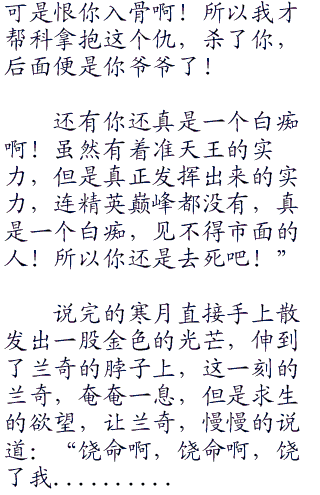 可是恨你入骨啊！所以我才
帮科拿抱这个仇，杀了你，
后面便是你爷爷了！
还有你还真是一个白痴
啊！虽然有着准天王的实
力，但是真正发挥出来的实
力，连精英巅峰都没有，真
是一个白痴，见不得市面的
人！所以你还是去死吧！”
说完的寒月直接手上散
发出一股金色的光芒，伸到
了兰奇的脖子上，这一刻的
兰奇，奄奄一息，但是求生
的欲望，让兰奇，慢慢的说
道：“饶命啊，饶命啊，饶
了我..........